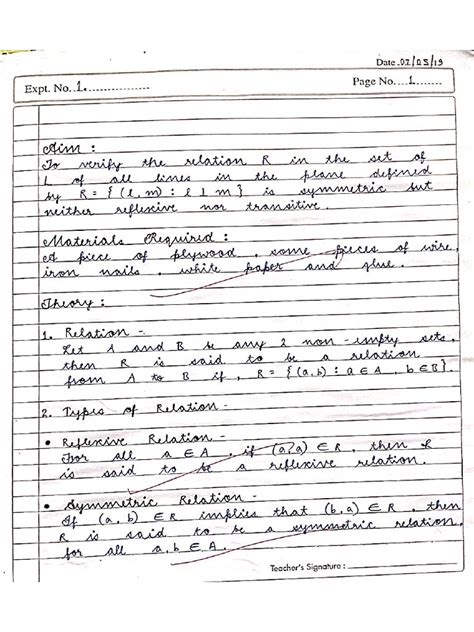 Date 02/05/19
Expt. No. 1.
Page No. 1
Aim :
To verify the relation R in the set of
L of all lines in the plane defined
by R = { (l, m) : l ⊥ m } is symmetric but
neither reflexive nor transitive.
Materials Required :
A piece of plywood, some pieces of wire,
iron nails, white paper and glue.
Theory :
1. Relation -
Let A and B be any 2 non-empty sets,
then R is said to be a relation
from A to B if, R = { (a,b) : a ∈ A, b ∈ B }.
2. Types of Relation -
• Reflexive Relation -
For all a ∈ A, if (a,a) ∈ R, then R
is said to be a reflexive relation.
• Symmetric Relation -
If (a, b) ∈ R implies that (b, a) ∈ R, then
R is said to be a symmetric relation,
for all a, b ∈ A.
Teacher's Signature :